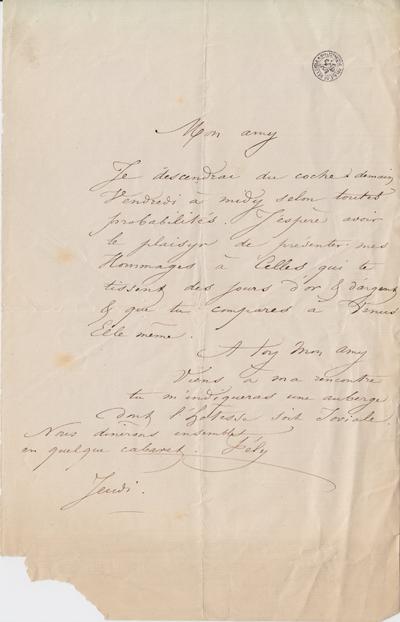 Mon amy
Je descendrai du coche demain
Vendredi à midy selon toutes
probabilités. J'espère avoir
le plaisyr de présenter mes
Hommages à Celles qui te
tissent des jours d'or & d'argent
& que tu compares à Vénus
Elle même.
A Toy Mon Amy
Viens à ma rencontre
tu m'indiqueras une auberge
dont l'hôtesse soit Joviale.
Nous dinerons ensemble
en quelque cabaret. Fély
Jeudi.